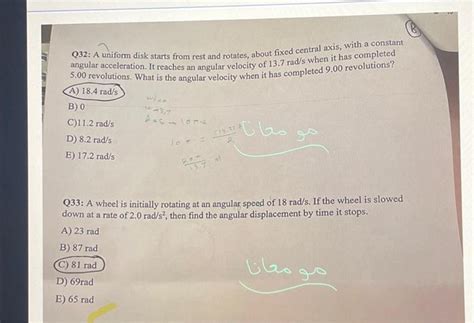 Q32: A uniform disk starts from rest and rotates, about fixed central axis, with a constant
angular acceleration. It reaches an angular velocity of 13.7 rad/s when it has completed
5.00 revolutions. What is the angular velocity when it has completed 9.00 revolutions?
A) 18.4 rad/s
B) 0
C)11.2 rad/s
D) 8.2 rad/s
E) 17.2 rad/s
مو معانا
Q33: A wheel is initially rotating at an angular speed of 18 rad/s. If the wheel is slowed
down at a rate of 2.0 rad/s², then find the angular displacement by time it stops.
A) 23 rad
B) 87 rad
C) 81 rad
D) 69rad
E) 65 rad
مو معانا